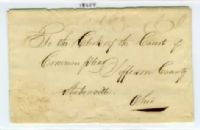 To the Clerk of the Court of
Common Pleas Jefferson County
Steubenville
Ohio